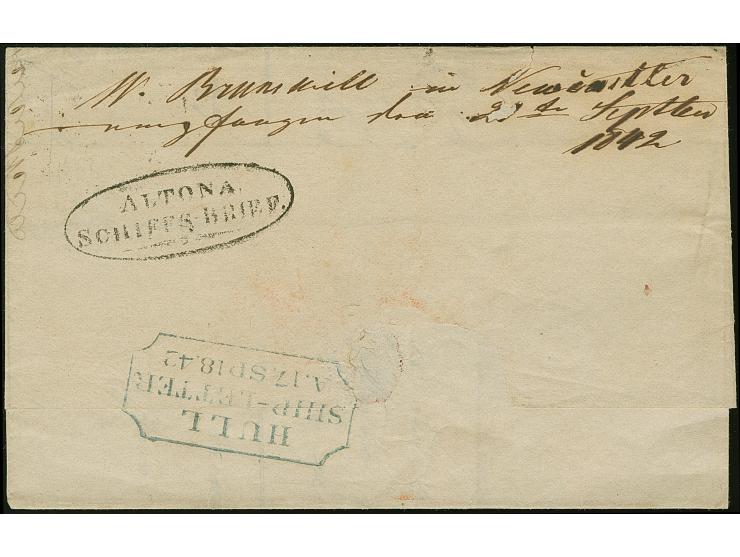 W. Brunskill in Newcastler
umpfangen den 21te Septber
1842
ALTONA.
SCHIFFS-BRIEF.
HULL
SHIP-LETTER
A.17.SP18.42